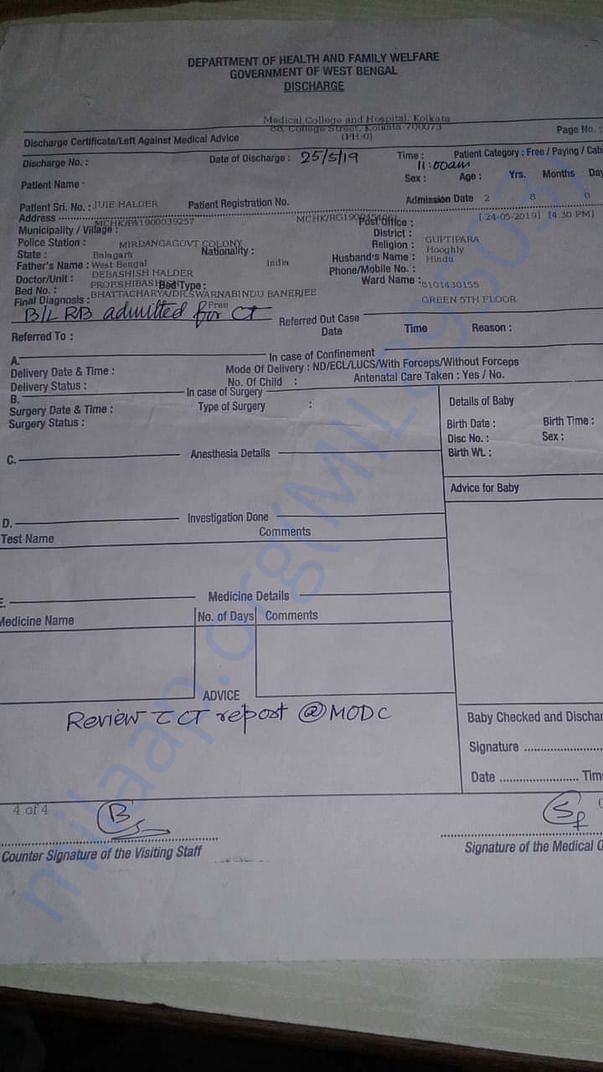 DEPARTMENT OF HEALTH AND FAMILY WELFARE
GOVERNMENT OF WEST BENGAL
DISCHARGE
Medical College and Hospital, Kolkata
88, College Street, Kolkata 700073
(PH:0)
Discharge Certificate/Left Against Medical Advice Page No. :
Discharge No. : Date of Discharge : 25/5/19 Time : 11:00am Patient Category : Free / Paying / Cab
Patient Name - Sex : Age : Yrs. Months Day
Patient Sri. No. : JUIE HALDER Patient Registration No. Admission Date 2 8 0
Address MCHK/RG190 Post Office : [ 24-05-2019] [4:30 PM]
Municipality / Village : District : GUPTIPARA
Police Station : MIRDANGAGOVT COLONY Nationality : Religion : Hooghly
State : Balagarh Husband's Name : Hindu
Father's Name : West Bengal India Phone/Mobile No. :
Doctor/Unit : DEBASHISH HALDER Ward Name : 8101430155
Bed No. : Bed Type :
Final Diagnosis : BHATTACHARYA/DR.SWARNABINDU BANERJEE GREEN 5TH FLOOR
Free
B/L RB admitted for CT
Referred Out Case
Referred To : Date Time Reason :
A. In case of Confinement
Delivery Date & Time : Mode Of Delivery : ND/ECL/LUCS/With Forceps/Without Forceps
Delivery Status : No. Of Child : Antenatal Care Taken : Yes / No.
B. In case of Surgery
Surgery Date & Time : Type of Surgery :
Surgery Status :
Details of Baby
Birth Date : Birth Time :
Disc No. : Sex :
Birth Wt. :
C. Anesthesia Details
Advice for Baby
D. Investigation Done
Test Name Comments
E. Medicine Details
Medicine Name No. of Days Comments
ADVICE
Review c̄ CT report @ MODC
Baby Checked and Dischar
Signature
Date Tim
4 of 4
Counter Signature of the Visiting Staff
Signature of the Medical O
milaap.org